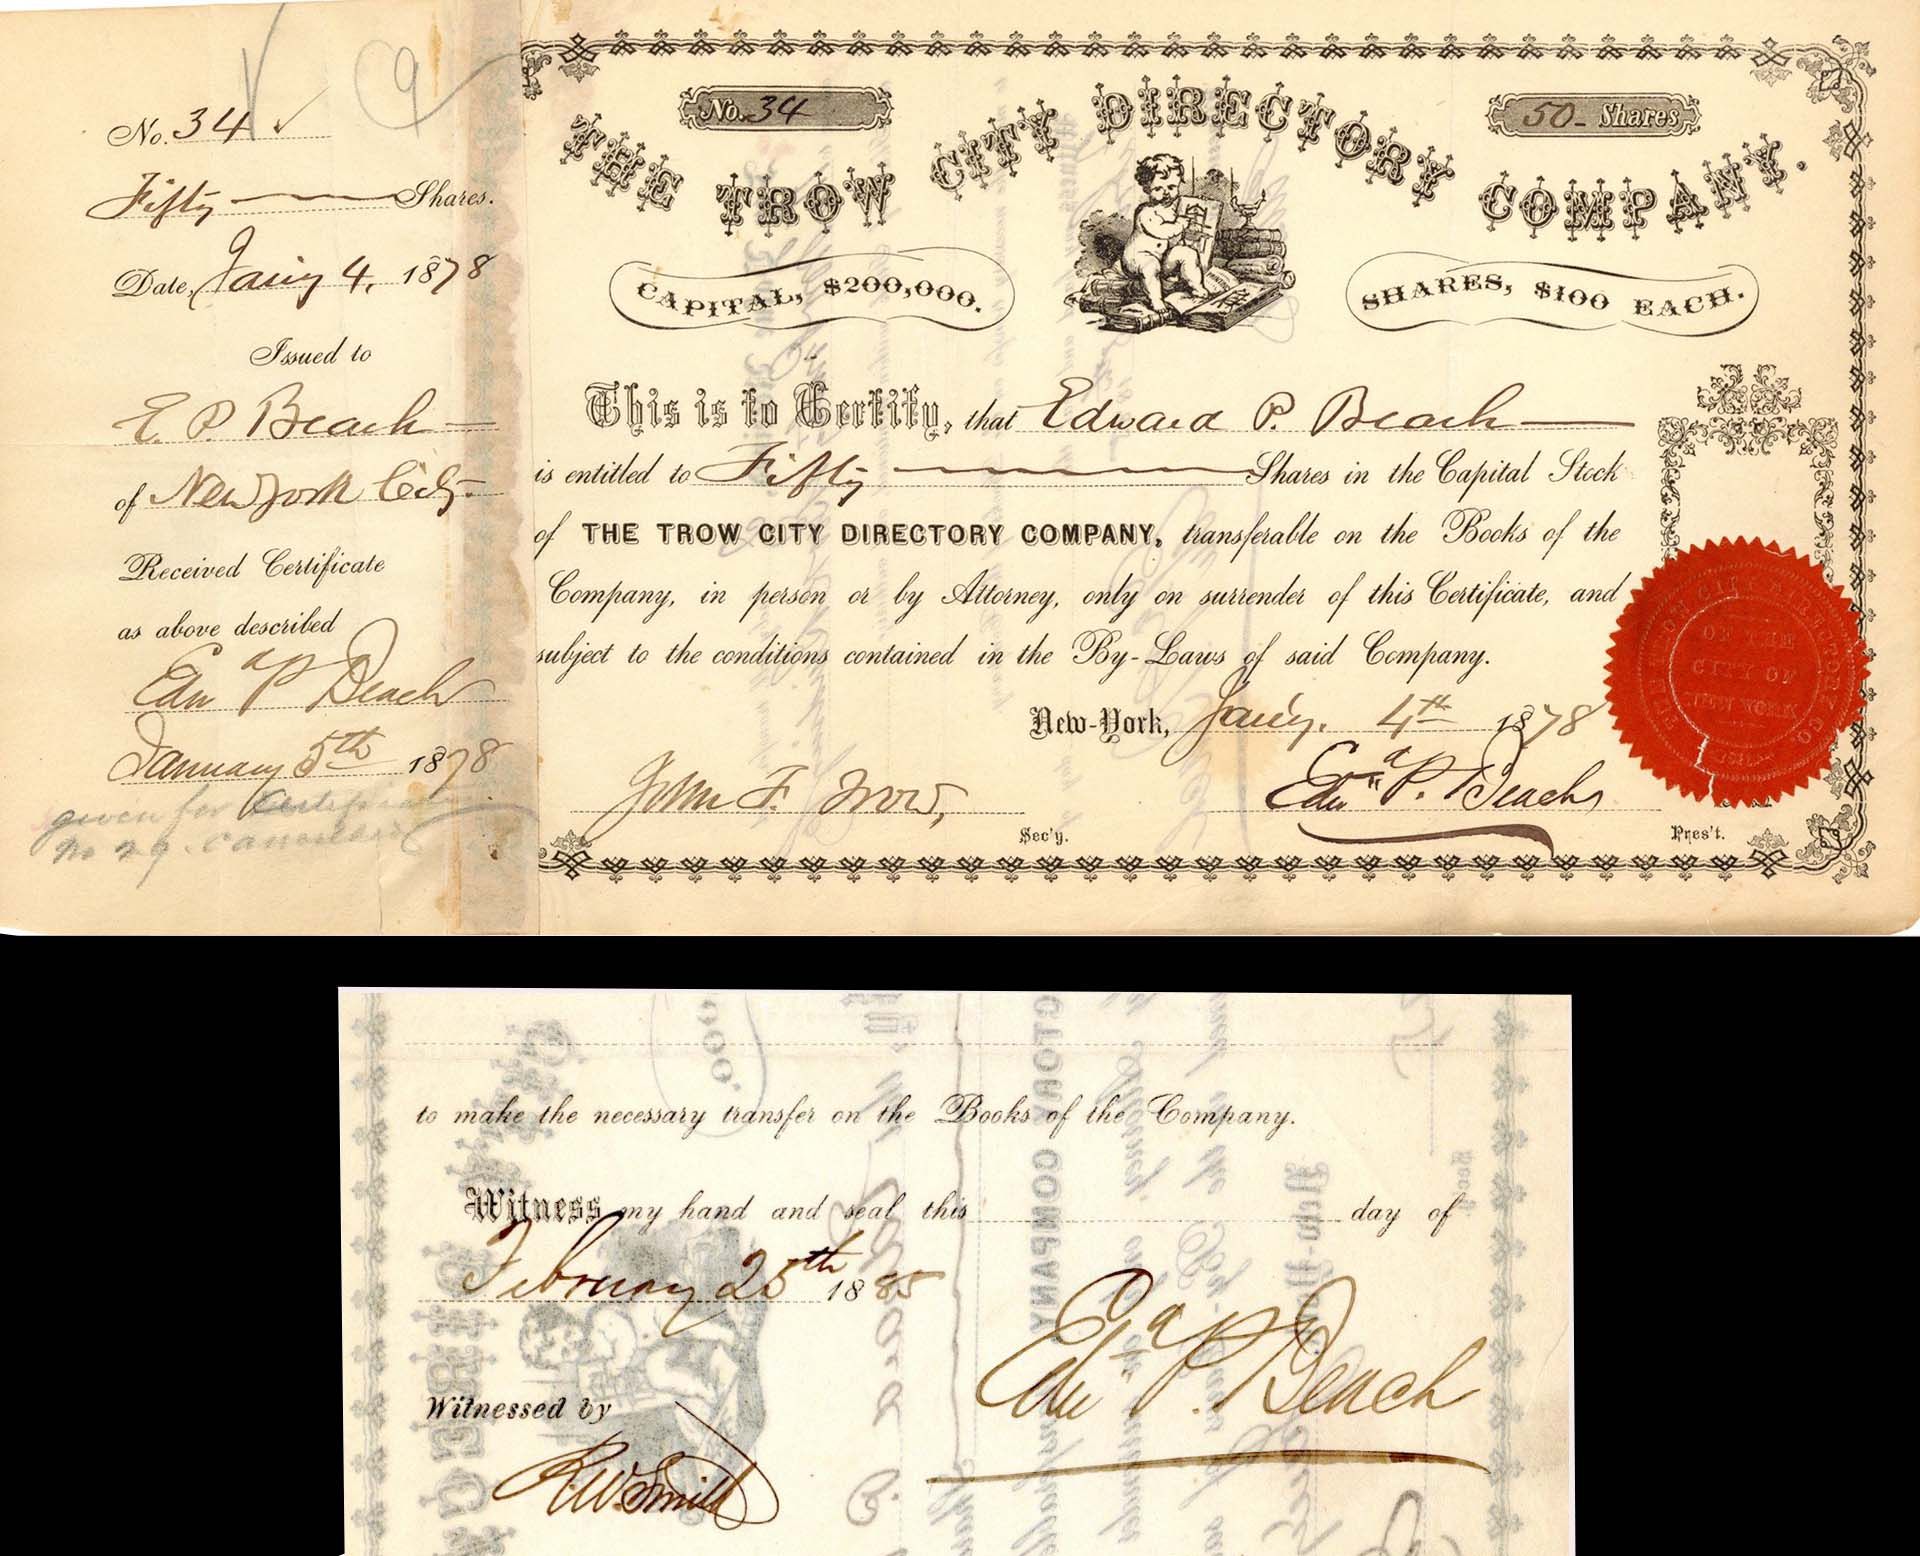 No. 34
Fifty Shares.
Date, Jany 4, 1878
Issued to
E. P. Beach
of New York City
Received Certificate
as above described
Edwd P Beach
January 5th 1878
given for Certificate
No 29
9
No. 34
50 Shares
THE TROW CITY DIRECTORY COMPANY.
CAPITAL, $200,000.
SHARES, $100 EACH.
This is to Certify, that Edward P. Beach
is entitled to Fifty Shares in the Capital Stock
of THE TROW CITY DIRECTORY COMPANY, transferable on the Books of the
Company, in person or by Attorney, only on surrender of this Certificate, and
subject to the conditions contained in the By-Laws of said Company.
New-York, Jany. 4th 1878
John F. Trow,
Sec'y.
Edwd P. Beach
Pres't.
OF THE
CITY OF
NEW YORK
to make the necessary transfer on the Books of the Company.
Witness my hand and seal this day of
February 25th 1885
Edwd P. Beach
Witnessed by
R.W. Smith